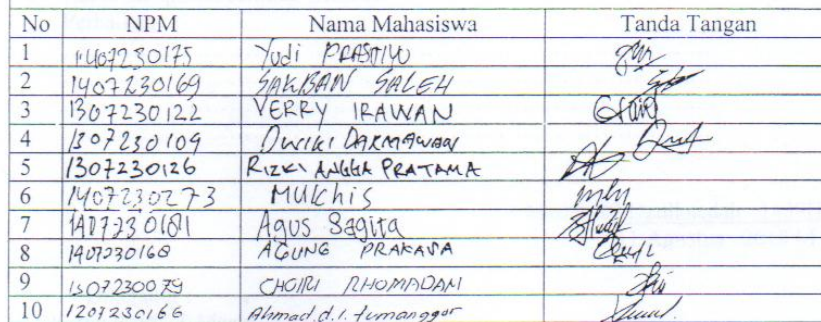 No NPM Nama Mahasiswa Tanda Tangan
1 1407230175 Yudi PRASTIYO
2 1407230169 SAKBAN SALEH
3 1307230122 VERRY IRAWAN
4 1307230109 DWIKI DARMAWAN
5 1307230126 RIZKI ANGGA PRATAMA
6 1407230273 MUKhis
7 1407230181 Agus Sagita
8 1407230168 AGUNG PRAKASA
9 1307230079 CHOIRI RHOMADANI
10 1207230166 Ahmad.d.i. tumanggor